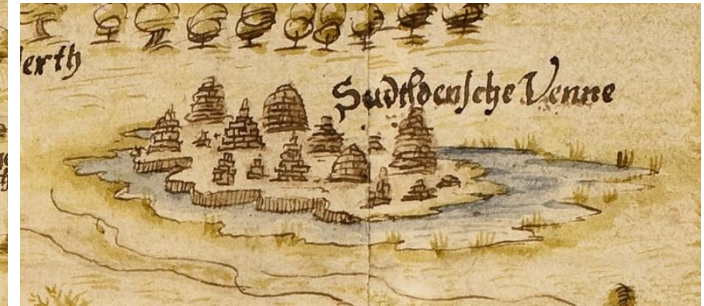 erth
Sudtldensche Venne